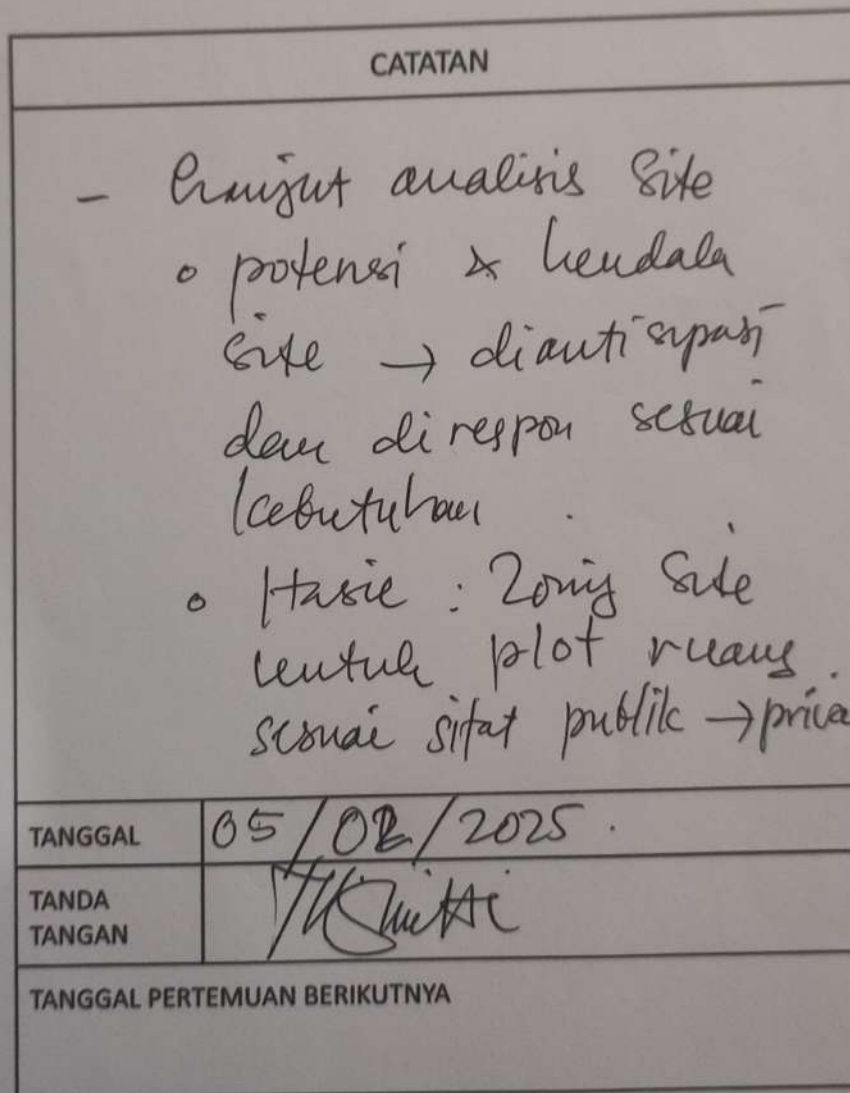 CATATAN
- Lanjut analisis Site
o potensi & kendala
site → diantisipasi
dan di respon sesuai
kebutuhan .
o Hasil : Zoning Site
untuk plot ruang
sesuai sifat publik → priva
TANGGAL 05/02/2025 .
TANDA
TANGAN
TANGGAL PERTEMUAN BERIKUTNYA